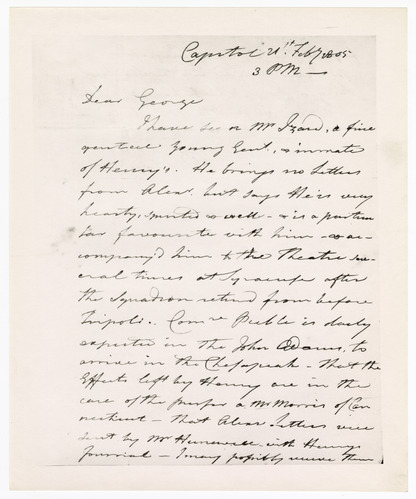 Capitol 21st Feby 1805
3 PM —
Dear George
I have seen Mr Izard, a fine
genteel young Gent., & inmate
of Henry's. He brings no Letters
from Alexr. but says He is very
hearty, & well — & is a particu
lar favourite with him — & ac-
company'd him to the Theatre sev-
eral times at Syracuse after
the Squadron return'd from before
Tripoli. Come Preble is daily
expected in the John Adams, to
arrive in the Chesapeak — that the
Effects left by Henry are in the
care of the purser a Mr Morris of Con
necticut — that Alexr Letters were
sent by Mr with Henry's
Journal — I may possibly receive them